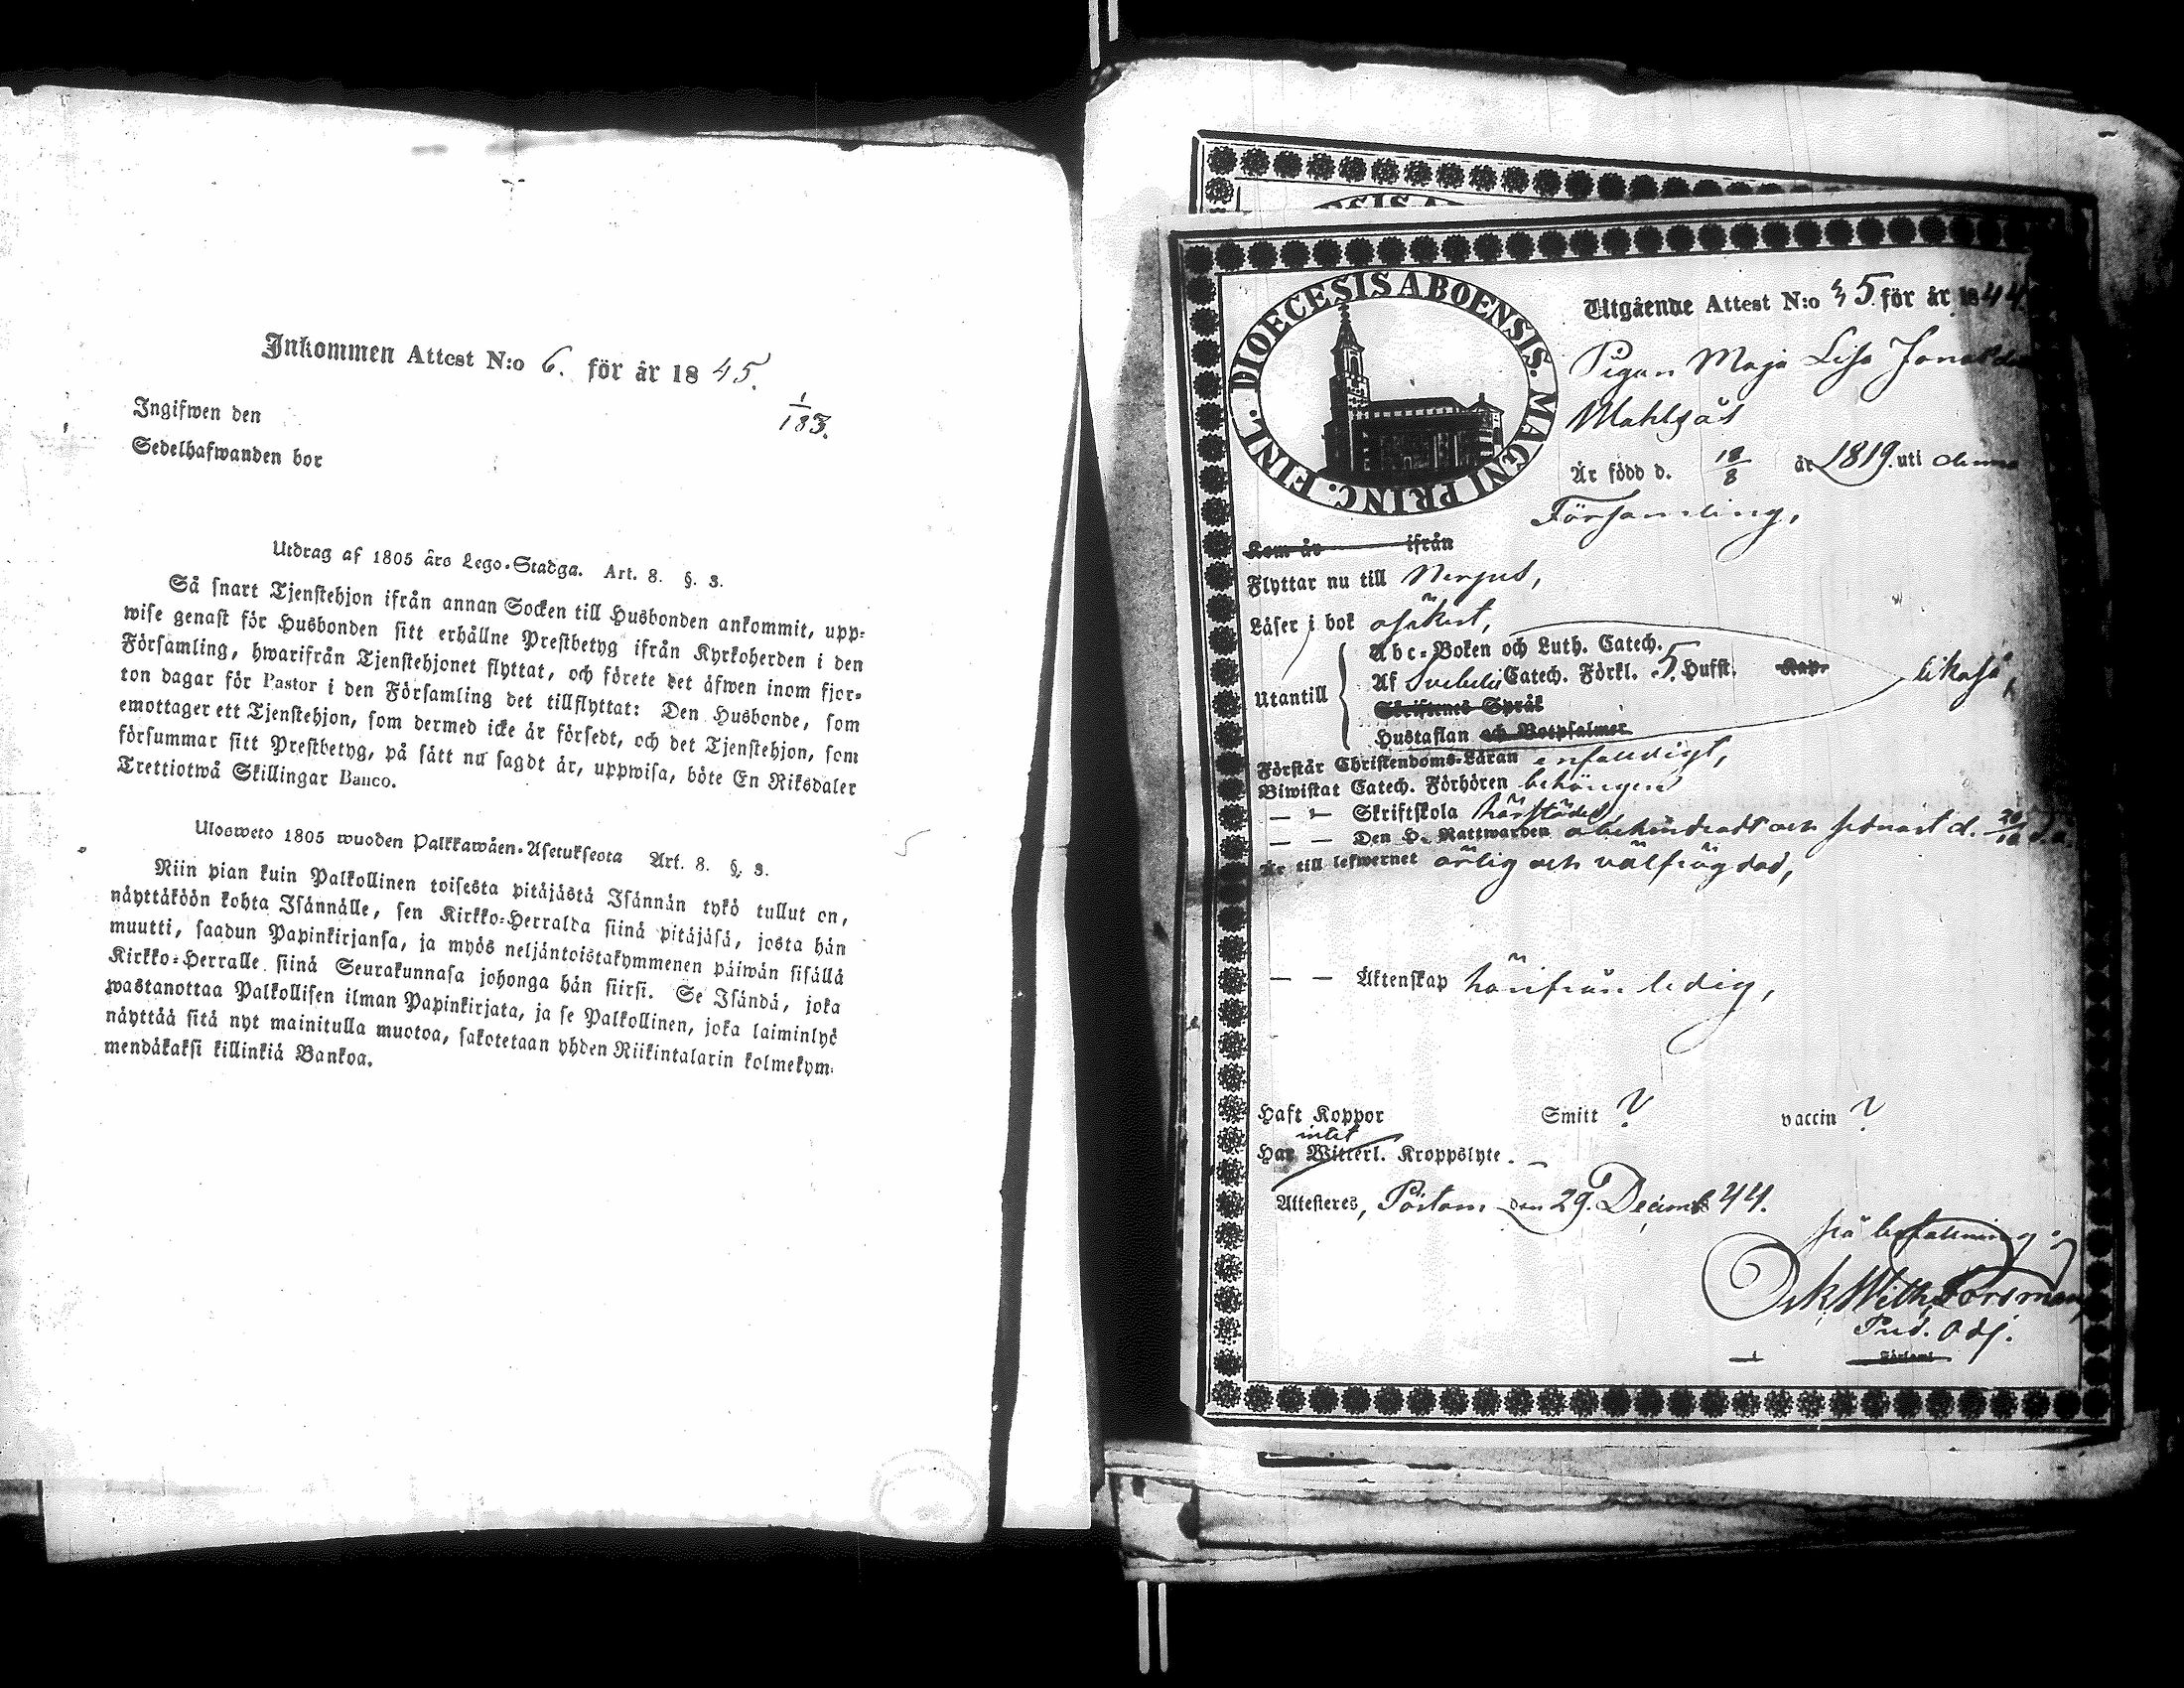 Inkommen Attest N:o 6. för år 1845.
1/183.
Ingifwen den
Sedelhafwanden bor
Utdrag af 1805 års Lego-Stadga. Art. 8. §. 3.
Så snart Tjenstehjon ifrån annan Socken till Husbonden ankommit, upp-
wise genast för Husbonden sitt erhållne Prestbetyg ifrån Kyrkoherden i den
Församling, hwarifrån Tjenstehjonet flyttat, och förete det åfwen inom fjor-
ton dagar för Pastor i den Församling det tillflyttat: Den Husbonde, som
emottager ett Tjenstehjon, som dermed icke är försedt, och det Tjenstehjon, som
försummar sitt Prestbetyg, på sätt nu sagdt är, uppwisa, böte En Riksdaler
Trettiotwå Skillingar Banco.
Ulosweto 1805 wuoden Palkkawäen-Asetuksesta Art. 8. §. 3.
Niin pian kuin Palkollinen toisesta pitäjästä Isännän tykö tullut on,
näyttäköön kohta Isännälle, sen Kirkko-Herralda siinä pitäjäsä, josta hän
muutti, saadun Papinkirjansa, ja myös neljäntoistakymmenen päiwän sisällä
Kirkko-Herralle siinä Seurakunnasa johonga hän siirsi. Se Isändä, joka
wastanottaa Palkollisen ilman Papinkirjata, ja se Palkollinen, joka laiminlyö
näyttää sitä nyt mainitulla muotoa, sakotetaan yhden Riikintalarin kolmekym-
mendäkaksi killinkiä Bankoa.
DIOECESIS ABOENSIS. MAGNI PRINC. FINL.
Utgående Attest N:o 35 för år 1844.
Pigan Maja Lisa
Är född d. 18/8 år 1819. uti denna
Församling,
Kom år ifrån
Flyttar nu till
Läser i bok
Abc-Boken och Luth. Catech.
Utantill Af Svebelii Catech. Förkl. 5. Hufst. Kap. likaså,
Skriftenes Språk
Hustaflan och Botpsalmer
Förstår Christendoms-Läran enfaldigt,
Biwistat Catech. Förhören behörigen
— — Skriftskola härstädes,
— — Den H. Nattwarden obehindradt och senast d. 20/10 d.å.
Är till lefwernet ärlig och välfrägdad,
— — Äktenskap härifrån ledig,
Haft Koppor Smitt ? vaccin ?
intet
Har Witterl. Kroppslyte. —
Attesteres, Pörtom den 29. Decemb 44.
på befallning:
Osk. Wilh. Forsman
Pred. Adj.